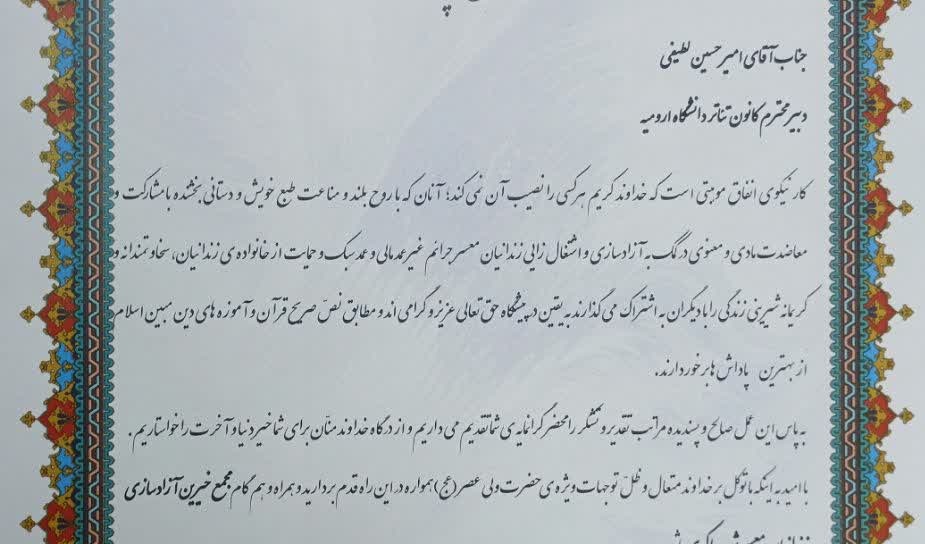 جناب آقای امیرحسین لطیفی
دبیر محترم کانون تئاتر دانشگاه ارومیه
کار نیکوی انفاق موهبتی است که خداوند کریم هر کسی را نصیب آن نمی کند؛ آنان که با روح بلند و مناعت طبع خویش و دستانی بخشنده با مشارکت و
معاضدت مادی و معنوی در کمک به آزادسازی و اشتغال زایی زندانیان معسر جرائم غیرعمد مالی و عمد سبک و حمایت از خانواده ی زندانیان، سخاوتمندانه و
کریمانه شیرینی زندگی را با دیگران به اشتراک می گذارند به یقین در پیشگاه حق تعالی عزیز و گرامی اند و مطابق نصّ صریح قرآن و آموزه های دین مبین اسلام
از بهترین پاداش ها برخوردارند.
به پاس این عمل صالح و پسندیده مراتب تقدیر و تشکر را محضر گرانمایه ی شما تقدیم می داریم و از درگاه خداوند منّان برای شما خیر دنیا و آخرت را خواستاریم.
با امید به اینکه با توکل بر خداوند متعال و ظلّ توجهات ویژه ی حضرت ولی عصر (عج) همواره در این راه قدم بردارید و همراه و هم گام مجمع خیرین آزادسازی